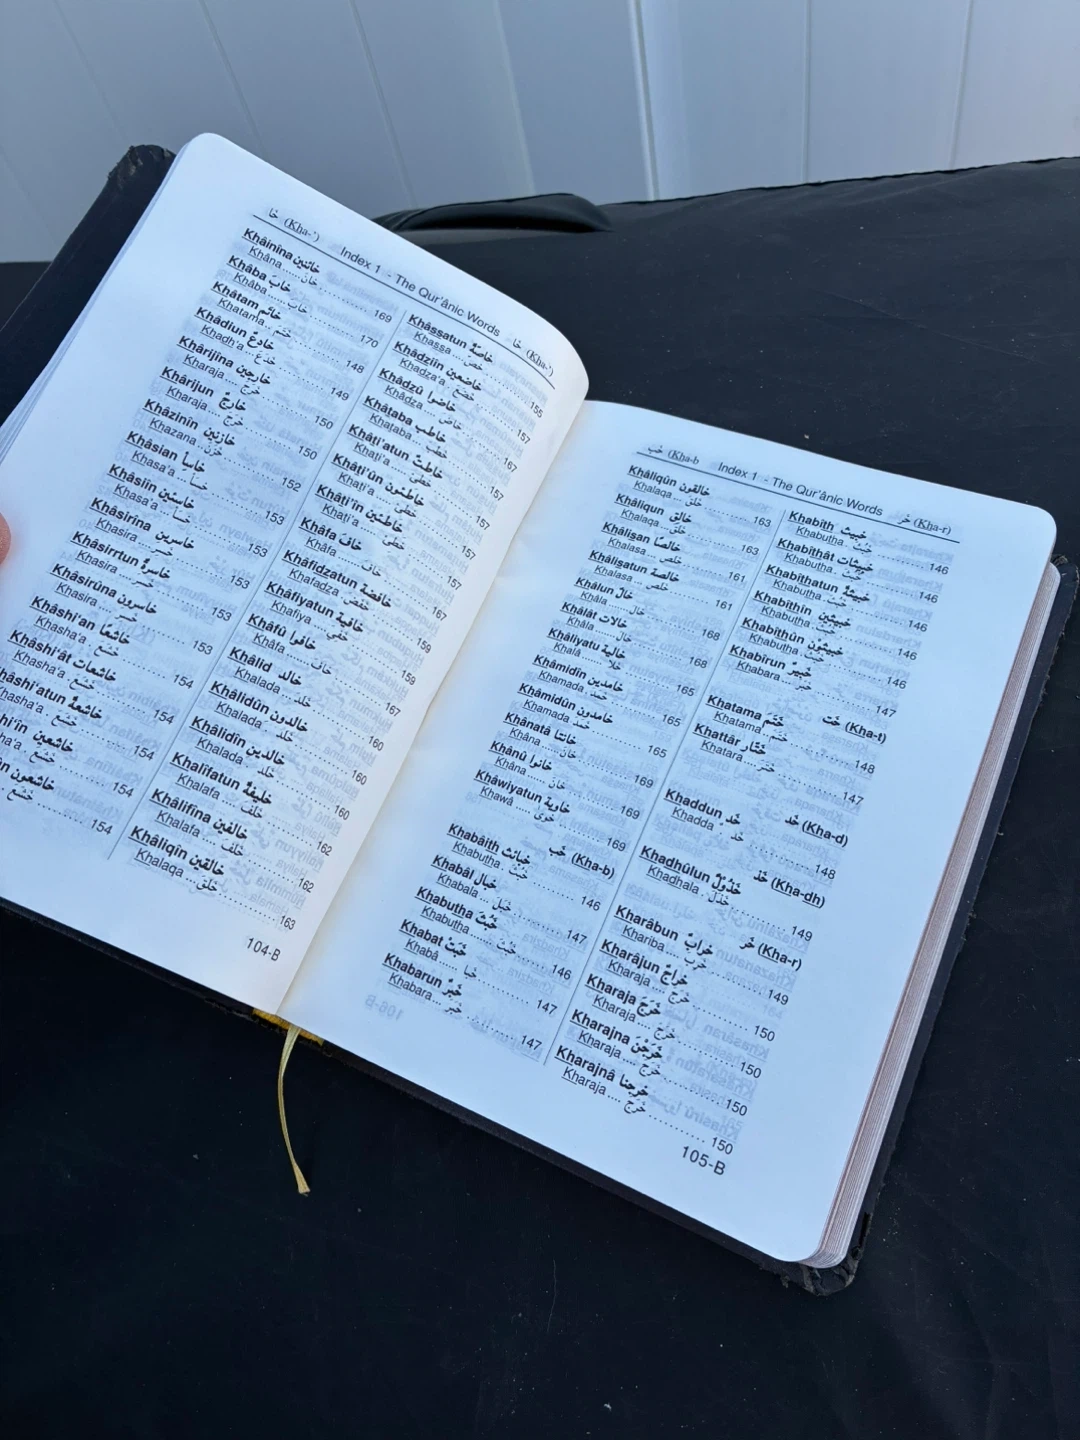 خَا (Kha-') Index 1 - The Qur'ânic Words خَا (Kha-')
Khâinîna خائنين
Khâna ...... خَانَ ...... 169
Khâba خابَ
Khâba .... خابَ ...... 170
Khâtam خاتَم
Khatama ... خَتَمَ ...... 148
Khâdiun خادِعٌ
Khadh'a ... خَدَعَ ...... 149
Khârijîna خارجين
Kharaja .... خَرَجَ ...... 150
Khârijun خارجٌ
Kharaja .... خَرَجَ ...... 150
Khâzinîn خازنين
Khazana .. خَزَنَ ...... 152
Khâsian خاسِأً
Khasa'a .. خَسَأَ ...... 153
Khâsiîn خاسئين
Khasa'a .. خَسَأَ ...... 153
Khâsirîna خاسرين
Khasira .... خَسِرَ ...... 153
Khâsirrtun خاسرةٌ
Khasira .... خَسِرَ ...... 153
Khâsirûna خاسرون
Khasira .... خَسِرَ ...... 153
Khâshi'an خاشعًا
Khasha'a .. خَشَعَ ...... 154
Khâshi'ât خاشعات
Khasha'a .. خَشَعَ ...... 154
hâshi'atun خاشعةٌ
hasha'a .. خَشَعَ ...... 154
hi'în خاشعين
ha'a .. خَشَعَ ...... 154
ûn خاشعون
خَشَعَ ...... 154
Khâssatun خاصةٌ
Khassa .... خصَّ ...... 155
Khâdziîn خاضعين
Khadza'a . خَضَعَ ...... 157
Khâdzû خاضوا
Khâdza .... خاضَ ...... 167
Khâtaba خاطب
Khataba .. خَطَبَ ...... 157
Khâti'atun خاطئةٌ
Khati'a .... خَطِئَ ...... 157
Khâti'ûn خاطئون
Khati'a .... خَطِئَ ...... 157
Khâti'în خاطئين
Khati'a .... خَطِئَ ...... 157
Khâfa خافَ
Khâfa .... خافَ ...... 167
Khâfidzatun خافضة
Khafadza . خَفَضَ ...... 159
Khâfiyatun خافية
Khafiya .... خَفِيَ ...... 159
Khâfû خافوا
Khâfa .... خافَ ...... 167
Khâlid خالد
Khalada .. خَلَدَ ...... 160
Khâlidûn خالدون
Khalada .. خَلَدَ ...... 160
Khâlidîn خالدين
Khalada .. خَلَدَ ...... 160
Khalîfatun خليفةٌ
Khalafa .. خَلَفَ ...... 162
Khâlifîna خالفين
Khalafa .. خَلَفَ ...... 162
Khâliqîn خالقين
Khalaqa .. خَلَقَ ...... 163
104-B
خَب (Kha-b Index 1 - The Qur'ânic Words خَر (Kha-r)
Khâliqûn خالقون
Khalaqa .. خَلَقَ ...... 163
Khâliqun خالق
Khalaqa .. خَلَقَ ...... 163
Khâlisan خالصًا
Khalasa .. خَلَصَ ...... 161
Khâlisatun خالصة
Khalasa .. خَلَصَ ...... 161
Khâtun خال
Khâla .... خال ...... 168
Khâlât خالات
Khâla .... خال ...... 168
Khâliyatu خالية
Khalâ .... خلا ...... 165
Khâmidîn خامدين
Khamada . خَمَدَ ...... 165
Khâmidûn خامدون
Khamada خَمَدَ ...... 165
Khânatâ خانتا
Khâna .... خَانَ ...... 169
Khânû خانوا
Khâna .... خَانَ ...... 169
Khâwiyatun خاوية
Khawâ .... خَوَى ...... 169
خَب (Kha-b)
Khabâith خبائث
Khabutha . خَبُثَ ...... 146
Khabâl خبال
Khabala ... خَبَلَ ...... 147
Khabutha خَبُثَ
Khabutha .. خَبُثَ ...... 146
Khabat خَبَتْ
Khabâ ...... خَبا ...... 147
Khabarun خَبَرٌ
Khabara ... خَبَرَ ...... 147
Khabîth خبيث
Khabutha .. خَبُثَ ...... 146
Khabîthât خبيثات
Khabutha .. خَبُثَ ...... 146
Khabîthatun خبيثةٌ
Khabutha .. خَبُثَ ...... 146
Khabîthîn خبيثين
Khabutha .. خَبُثَ ...... 146
Khabîthûn خبيثون
Khabutha .. خَبُثَ ...... 146
Khabîrun خبيرٌ
Khabara ... خَبَرَ ...... 147
خَت (Kha-t)
Khatama خَتَمَ
Khatama ... خَتَمَ ...... 148
Khattâr خَتَّار
Khatara .... خَتَرَ ...... 147
خَد (Kha-d)
Khaddun خَد
Khadda .... خَدَّ ...... 148
خَذ (Kha-dh)
Khadhûlun خَذُولٌ
Khadhala .. خَذَلَ ...... 149
خَر (Kha-r)
Kharâbun خرابٌ
Khariba .... خَرِبَ ...... 149
Kharâjun خراجٌ
Kharaja .... خَرَجَ ...... 150
Kharaja خَرَجَ
Kharaja .... خَرَجَ ...... 150
Kharajna خَرَجْنَ
Kharaja .... خَرَجَ ...... 150
Kharajnâ خرجنا
Kharaja .... خَرَجَ ...... 150
105-B